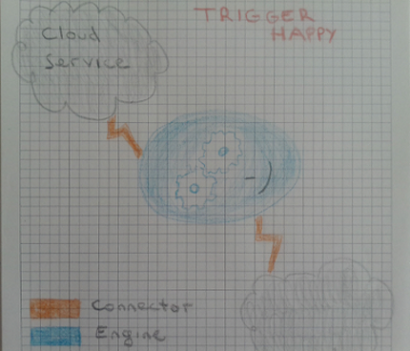 TRIGGER
HAPPY
Cloud
Service
Connector
Engine